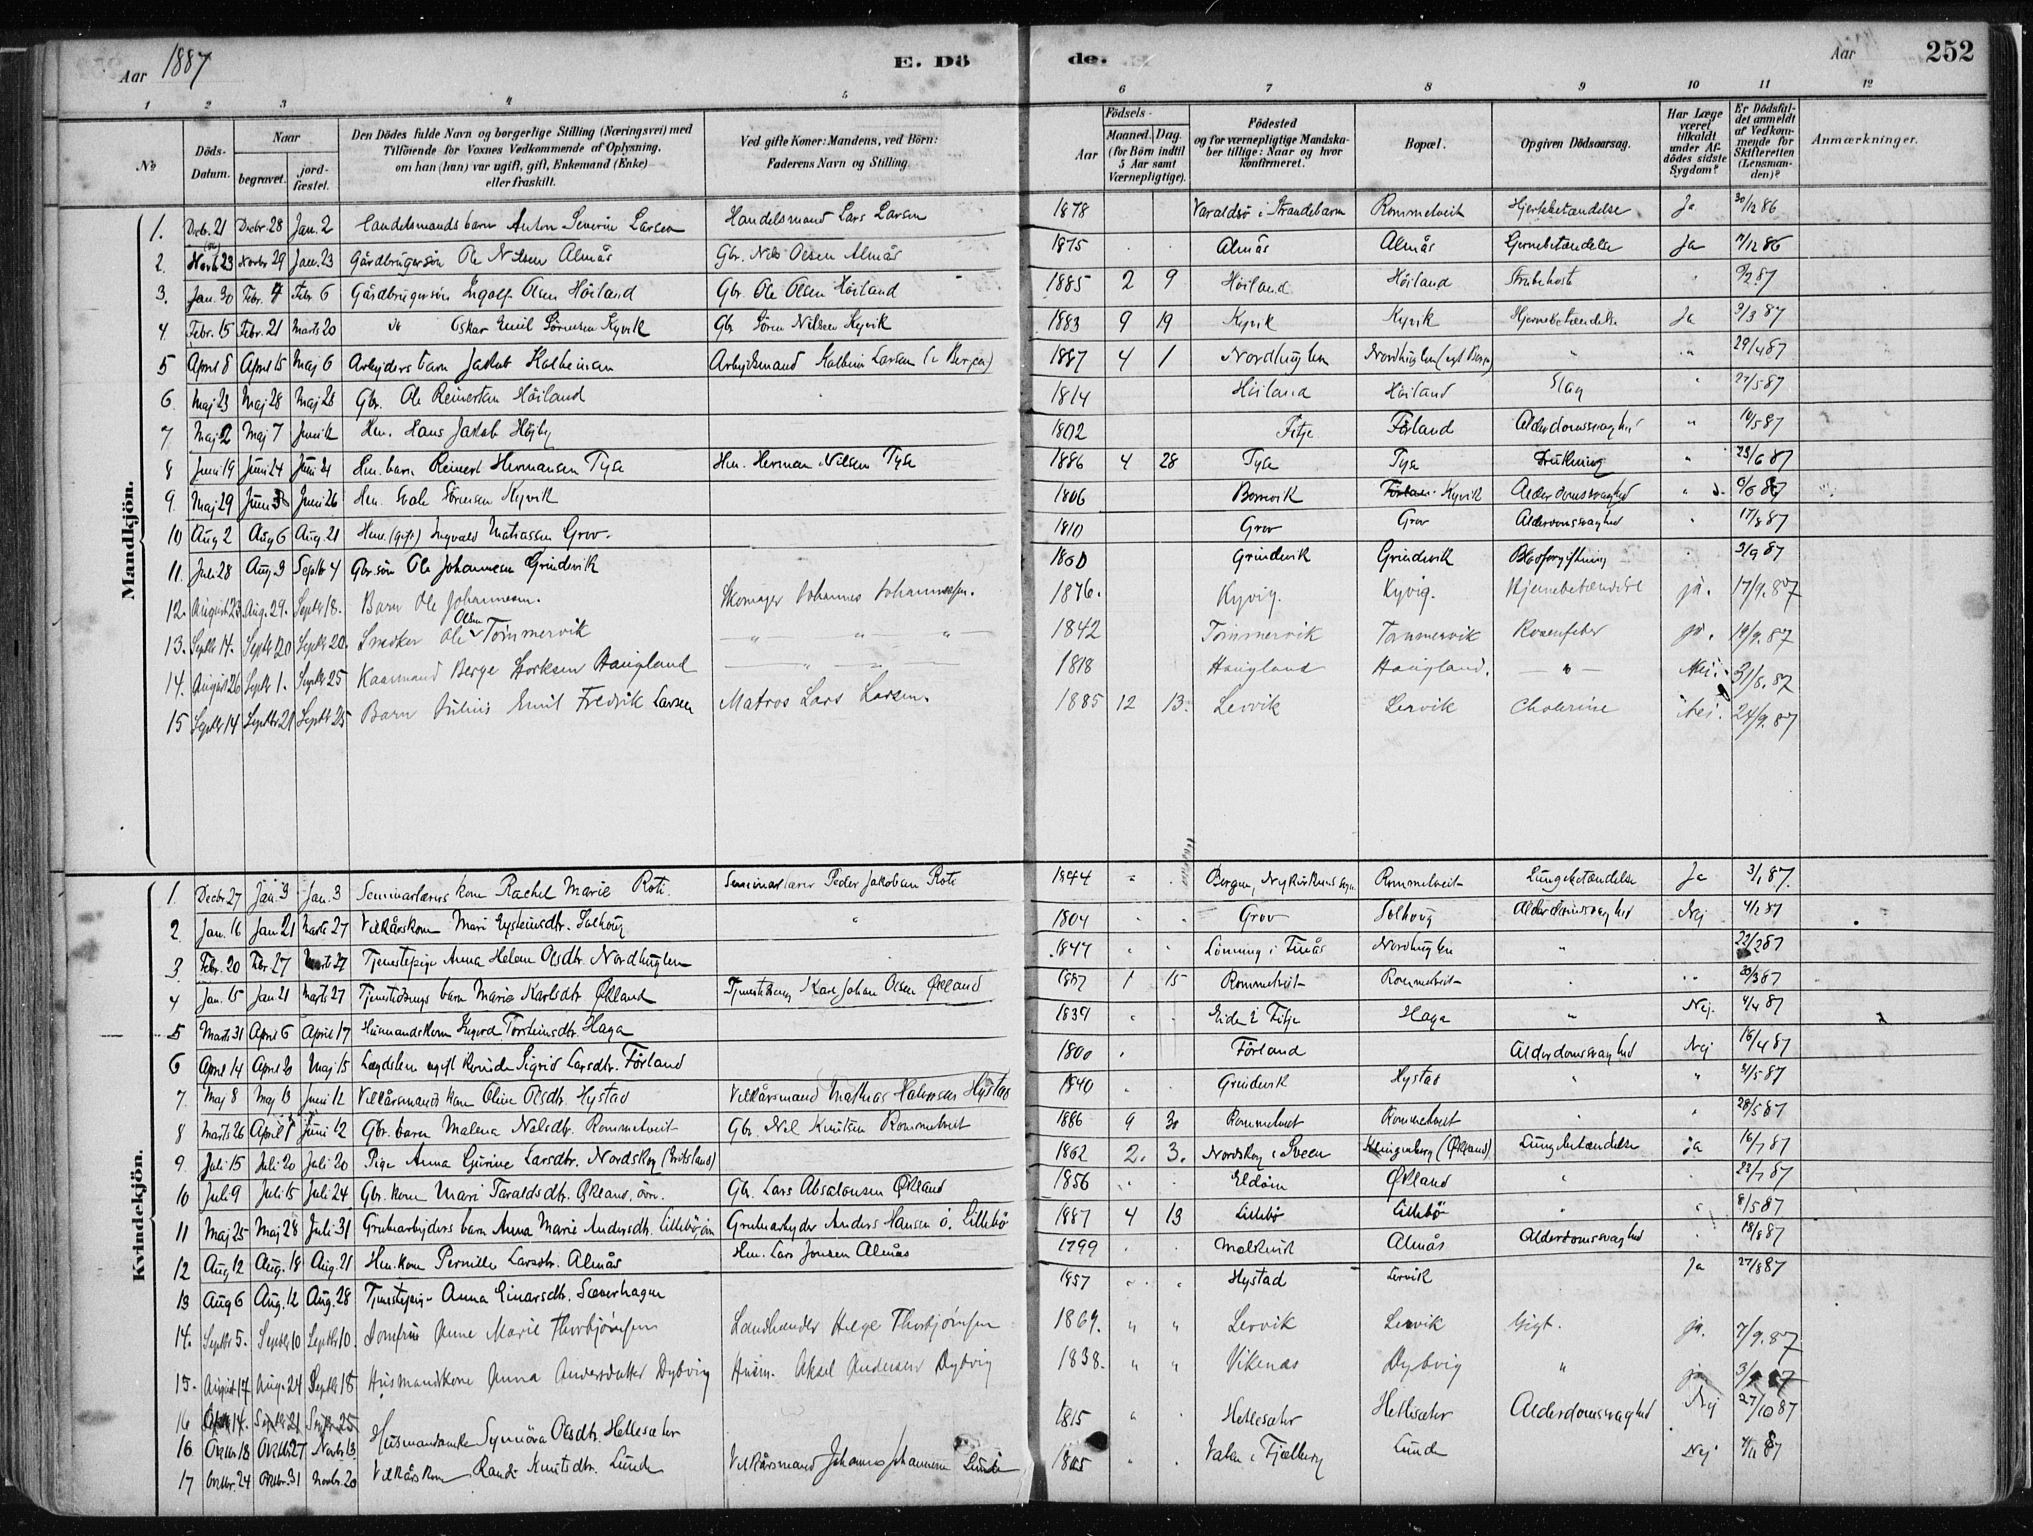 Aar 1887 E. Dö de. Aar 252
1 2 3 4 5 6 7 8 9 10 11 12
No
Döds-Datum.
Naar
begravet.
jord-fæstet.
Den Dödes fulde Navn og borgerlige Stilling (Næringsvei) med
Tilföiende for Voxnes Vedkommende af Oplysning,
om han (hun) var ugift, gift, Enkemand (Enke)
eller fraskilt.
Ved gifte Koner: Mandens, ved Börn:
Faderens Navn og Stilling.
Födsels-
Aar
Maaned. Dag.
(for Börn indtil
5 Aar samt
Værnepligtige).
Födested
og for værnepligtige Mandska-
ber tillige: Naar og hvor
konfirmeret.
Bopæl.
Opgiven Dödsaarsag.
Har Læge
været
tilkaldt
under Af-
dödes sidste
Sygdom?
Er Dödsfal-
det anmeldt
af Vedkom-
mende for
Skifteretten
(Lensman-
den)?
Anmærkninger.
Mandkjön.
1. Decb. 21 Decbr. 28 Jan. 2 Handelsmands barn Anton Severin Larsen Handelsmand Lars Larsen 1878 Varaldsö i Strandebarm Rommetveit Hjertebetændelse Ja 30/12 86
2. 23 Novbr 29 Jan. 23 Gårdbrugersön Ole Nilsen Almås Gbr. Nils Olsen Almås 1875 Almås Almås Ja 7/12 86
3. Jan. 30 Febr. 4 Febr. 6 Gårdbrugersön Ingolf Olsen Höiland Gbr. Ole Olsen Höiland 1885 2 9 Höiland Höiland Strubehoste 9/2 87
4. Febr. 15 Febr. 21 Marts 20 do Oskar Emil Sörensen Kyvik Gbr. Sören Nilsen Kyvik 1883 9 19 Kyvik Kyvik Hjernebetændelse Ja 3/3 87
5 April 8 April 15 Maj 6 Arbejders barn Jakob Kolbeinsen Arbejdsmand Kolbein Larsen (i Bergen) 1887 4 1 Nordhuglen Nordhuglen " " 29/4 87
6. Maj 23 Maj 28 Maj 28 Gbr. Ole Reinertsen Höiland 1814 Höiland Höiland Slag " 27/5 87
7 Maj 2 Maj 7 Juni 12 Hm. Hans Jakob 1802 Fitje Förland Alderdomssvaghed " 10/5 87
8 Juni 19 Juni 24 Juni 24 Hm. barn Reinert Hermansen Tyse Hm. Herman Nilsen Tyse 1886 4 28 Tyse Tyse " 23/6 87
9 Maj 29 Juni 3 Juni 26 Hm. Sörensen Kyvik 1806 Kyvik Alderdomssvaghed " 6/6 87
10 Aug 2 Aug 6 Aug. 21 Hm. (gift) Ingvald Matiassen Grov. 1810 Grov Grov Alderdomssvaghed 17/8 87
11. Juli 28 Aug. 3 Septbr 4 Gbr.sön Ole Johannesen Grindevik 1860 Grindevik Grindevik Blodforgiftning 3/9 87
12. August 23 Aug. 29. Septbr 18. Barn Ole Johannesen. Skomager Johannes Johannessen. 1876. Kyvig. Kyvig. Hjernebetændelse ja. 17/9. 87
13. Septbr 14. Septbr 20 Septbr 20. Snedker Ole Olsen Tömmervik " " " 1842 Tömmervik Tömmervik Rosenfeber ja. 19/9. 87
14. August 26 Septbr 1. Septbr 25 Kaarmand Berge Haugland " 1818 Haugland Haugland. " Nei. 31/8. 87
15 Septbr 14 Septbr 21 Septbr 25 Barn Julius Emil Fredrik Larsen Matros Lars Larsen. 1885 12 13. Lervik Lervik Cholerine Nei. 24/9. 87
Kvindekjön.
1. Decbr 27 Jan. 3 Jan. 3 Seminarlærers kone Rachel Marie Roti Seminarlærer Peder Jakobsen Roti 1844 " Bergen, Rommetveit Lungebetændelse Ja 3/1 87.
2. Jan. 16 Jan 21 Marts 27 Vilkårskone Mari Eysteinsdtr. Solhoug " 1804 Grov Solhoug Alderdomssvaghed Nej 4/2 87
3 Febr. 20 Febr. 27 Marts 27 Tjenestepige Anna Helene Olsdtr. Nordhuglen 1847 Lönning i Finås Nordhuglen " 22/2 87
4 Jan. 15 Jan 21 Marts 27 Tjenestedrengs barn Marie Karlsdtr. Økland Tjenestedreng Karl Johan Olsen Økland 1887 1 15 Rommetveit Rommetveit " " 20/3 87
5 Marts 31 April 6 April 17 Husmandskone Ingerd Torsteinsdtr. Haga 1839 Eide i Fitje Haga " Nej. 4/4 87
6 April 14 April 20 Maj 15 Lægdslem ugift kvinde Sigrid Larsdtr. Förland 1800 Förland Alderdomssvaghed Nej 16/4 87
7. Maj 8 Maj 13 Juni 12 Vilkårsmands kone Oline Olsdtr. Hystad Vilkårsmand Mathias Halvorsen Hystad 1840 Grindevik Hystad " " 31/5 87
8 Marts 26 April 1 Juni 12 Gbr. barn Malena Nilsdtr. Rommetveit Gbr. Nils Knutsen Rommetveit 1886 9 30 Rommetveit Rommetveit " " 28/5 87
9. Juli 15 Juli 20 Juli 20 Pige Anna Gurine Larsdtr. Nordskog 1862 2. 3. Nordskog i Sveen Klingenberg (Økland) Lungebetændelse ja 16/7 87
10 Juli 9 Juli 15 Juli 24 Gbr. kone Mari Taraldsdtr. Økland, övre. Gbr. Lars Absalonsen Økland 1856 Eldöen Økland " 23/7 87
11 Maj 25 Maj 28 Juli 31 Grubearbejders barn Anna Marie Andersdtr. Lillebö Grubearbejder Anders Hansen ö. Lillebö 1887 4 13 Lillebö Lillebö " " 8/5 87
12 Aug 12 Aug. 18 Aug. 21 Hm. kone Pernille Larsdtr. Almås Hm. Lars Jonsen Almås 1799 Almås Alderdomssvaghed 18/8 87
13 Aug 6 Aug. 12 Aug. 28 Tjenestepige Anna Einarsdtr. Sæverhagen 1857 " " Hystad Lervik Ja 27/8 87
14. Septbr 5. Septbr 10 Septbr 10. Jomfru Anne Marie Thorbjörnsen Landhandler Helge Thorbjörnsen 1869. " " Lervik Lervik Gigt. ja. 7/9. 87
15. August 17 Aug. 24 Septbr 18 Husmandskone Anna Andersdatter Dybvig Husm. Aksel Andersen Dybvig 1838. " " Vikenæs Dybvig " ja 3/9 87
16 14. Septbr 21 Septbr 25
16 Oktbr 18 Oktbr 27 Novbr. 13 Husmandsenke Synnöva Olsdtr. Hellesæter 1815 " Hellesæter Hellesæter Alderdomssvaghed Nej 27/10 87
17 Oktbr. 24 Oktbr. 31 Novbr. 20 Vilkårskone Randi Knutsdtr. Lunde Vilkårsmand Johannes Johannesen Lunde 1805 " Valen i Fjelberg Lunde Nej 4/11 87